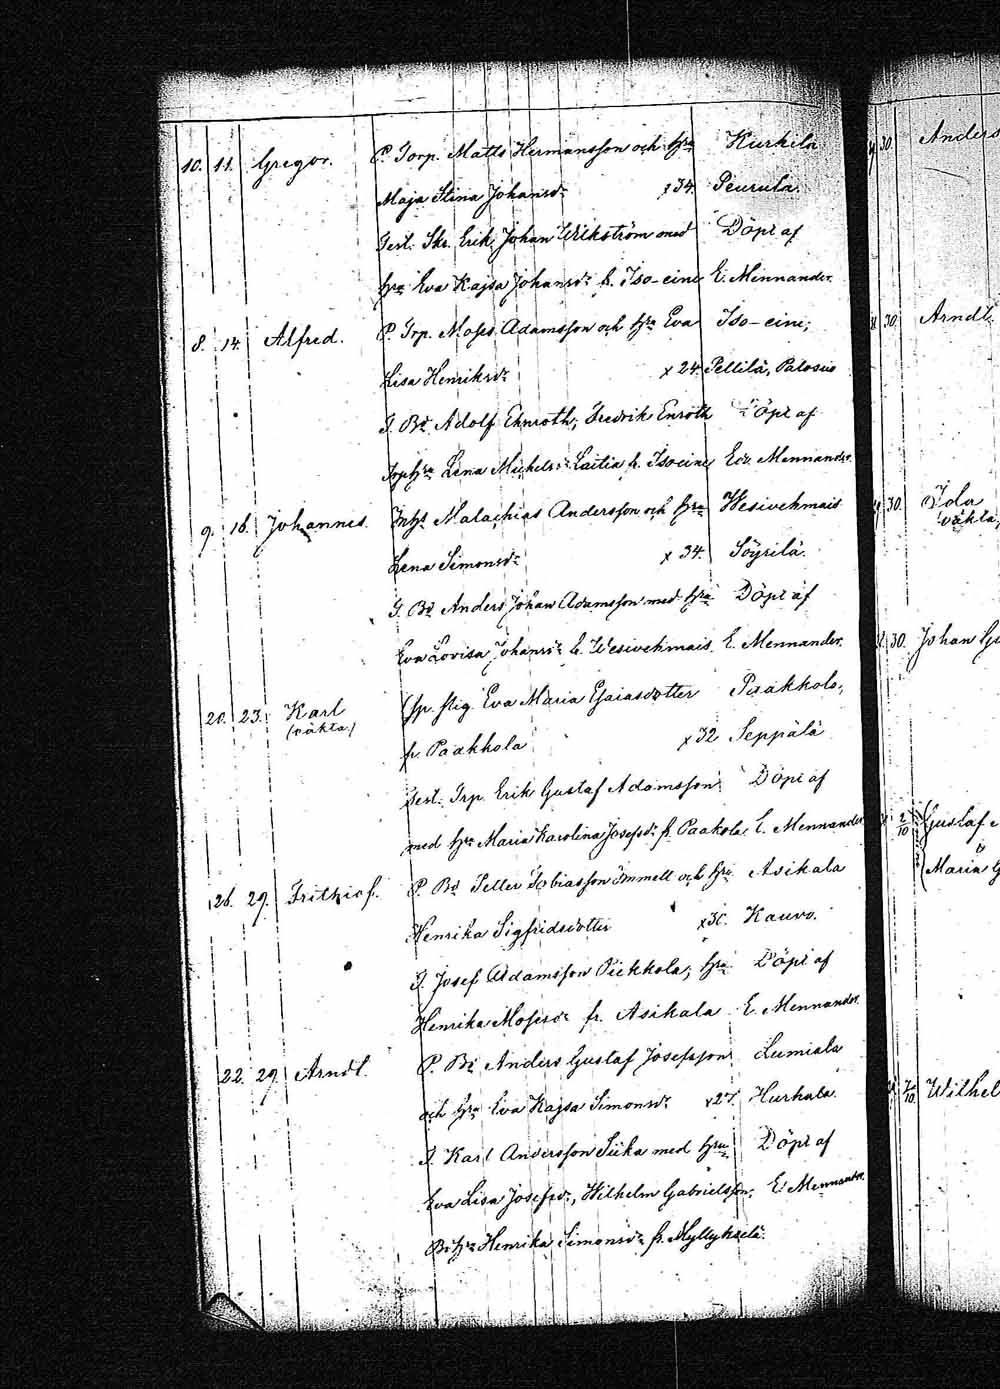 10. 11. Gregor. P. Torp. Matts Hermansson och hru Kurkela
Maja Stina Johansdr x 34. Peurula.
Test. Erik Johan Wikström med Döpt af
hru Eva Kajsa Johansdr fr. Iso-eine E. Mennander.
8. 14. Alfred. P. Trp. Moses Adamsson och hru Eva Iso-eini,
Lisa Henriksdr x 24. Pellilä, Palosuo
T. Bd Adolf Ehnroth, Fredrik Enroth Döpt af
Lena Michelsdr Laitia fr. Isoeine E. Mennander.
9. 16. Johannes. Inhs Malachias Andersson och hru Wesivehmais
Lena Simonsdr x 34. Söyrilä.
T. Bd Anders Johan Adamsson med hru Döpt af
Eva Lovisa Johansdr fr. Wesivehmais. E. Mennander.
20. 23. Karl Eva Maria Esaiasdotter Paakkola,
(oäkta)
fr. Paakkola x 32 Seppälä
Test. Trp. Erik Gustaf Adamsson Döpt af
med hru Maria Karolina Josefsdr fr. Paakola E. Mennander
26. 29. Frithiof. P. Bd Petter Tobiasson Immell och hru Asikala
Henrika Sigfridsdotter Kauvo.
T. Josef Adamsson Piekkola, hru Döpt af
Henrika Mosesdr fr. Asikala E. Mennander.
22. 29. Arndt. P. Bd Anders Gustaf Josefsson Lumiala
och hru Eva Kajsa Simonsdr x 27. Hurkala.
T. Karl Andersson Siika med hru Döpt af
Eva Lisa Josefsdr, Wilhelm Gabrielsson, E. Mennander.
Bhru Henrika Simonsdr fr. Myllykselä.
30. Anders
30. Arndt
30. Ida
(oäkta)
30. Johan Gu
2/10 Gustaf
Maria G
2/10 Wilhel